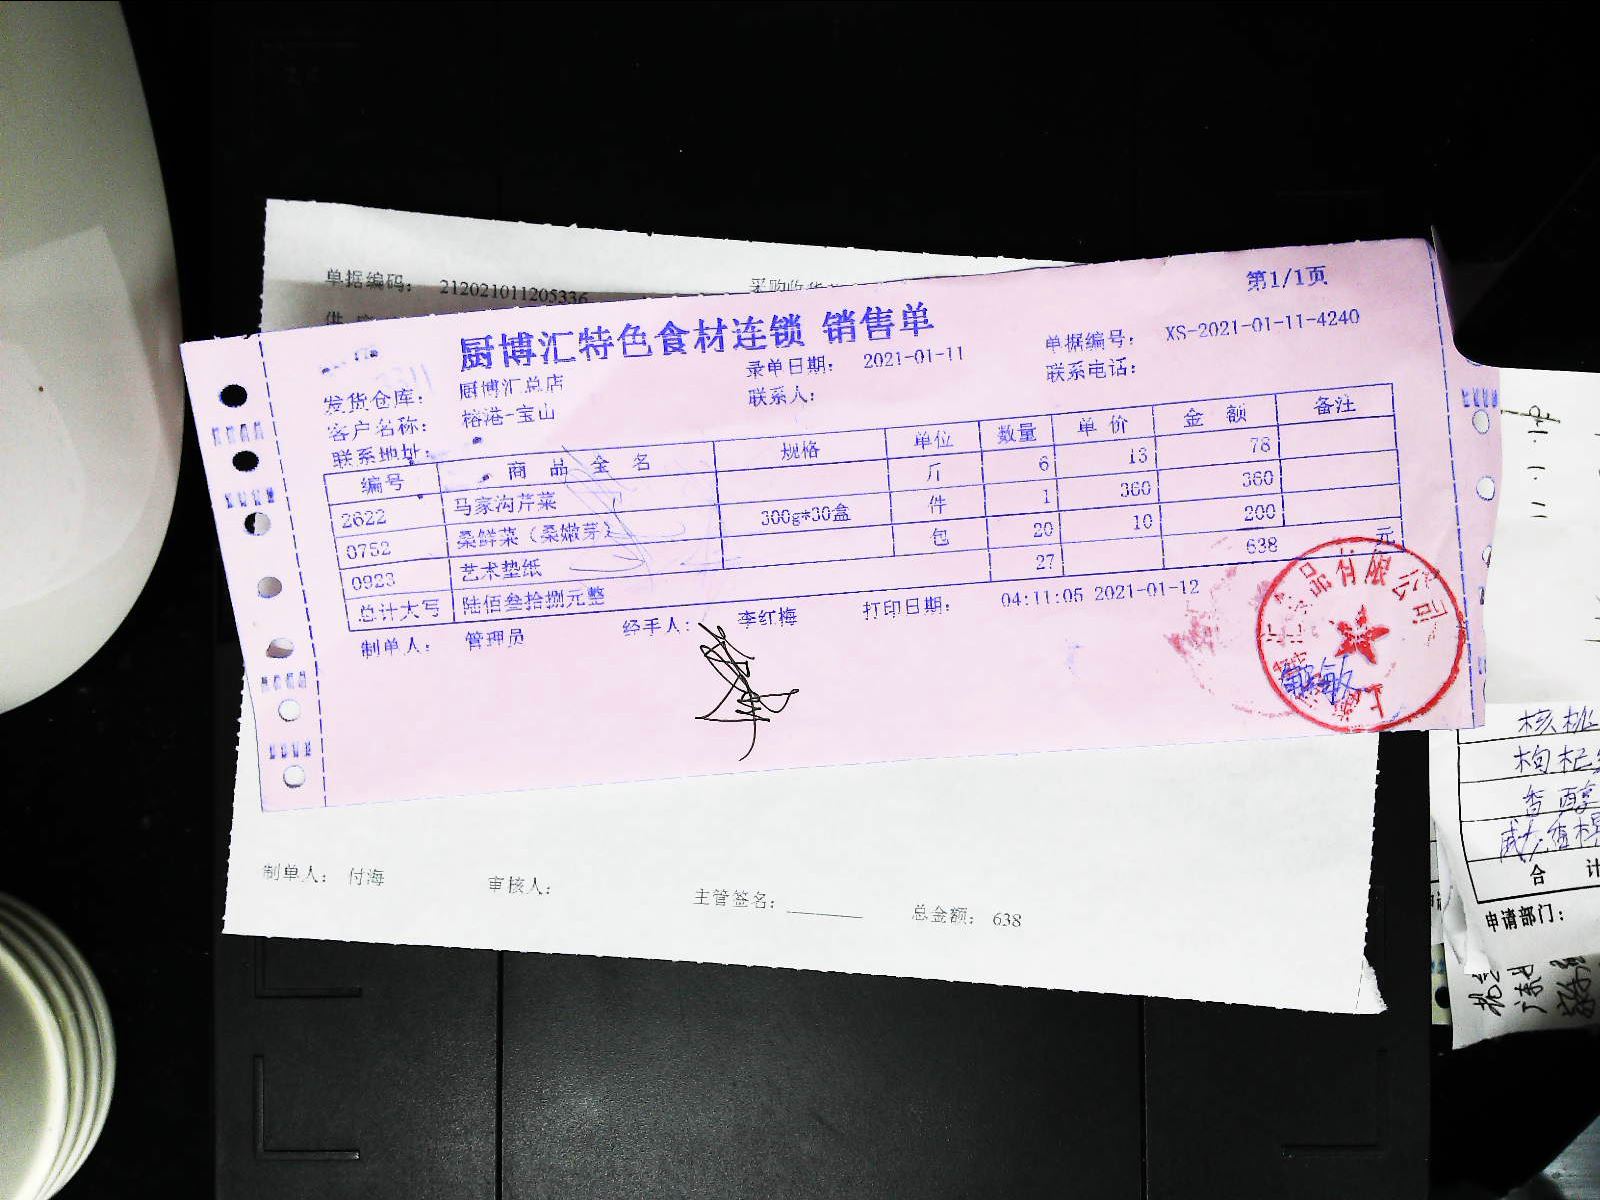 单据编码: 212021011205336
第1/1页
厨博汇特色食材连锁 销售单
录单日期: 2021-01-11 单据编号: XS-2021-01-11-4240
发货仓库: 厨博汇总店
联系人: 联系电话:
客户名称: 榕港-宝山
联系地址:
编号 商品全名 规格 单位 数量 单价 金额 备注
2622 马家沟芹菜 斤 6 13 78
0752 桑鲜菜(桑嫩芽) 300g*30盒 件 1 360 360
0923 艺术垫纸 包 20 10 200
总计大写 陆佰叁拾捌元整 27 638 元
制单人: 管理员 经手人: 李红梅 打印日期: 04:11:05 2021-01-12
品有限公司
上海
制单人: 付海 审核人: 主管签名: 总金额: 638
核桃
枸杞
香醇
合 计
申请部门: